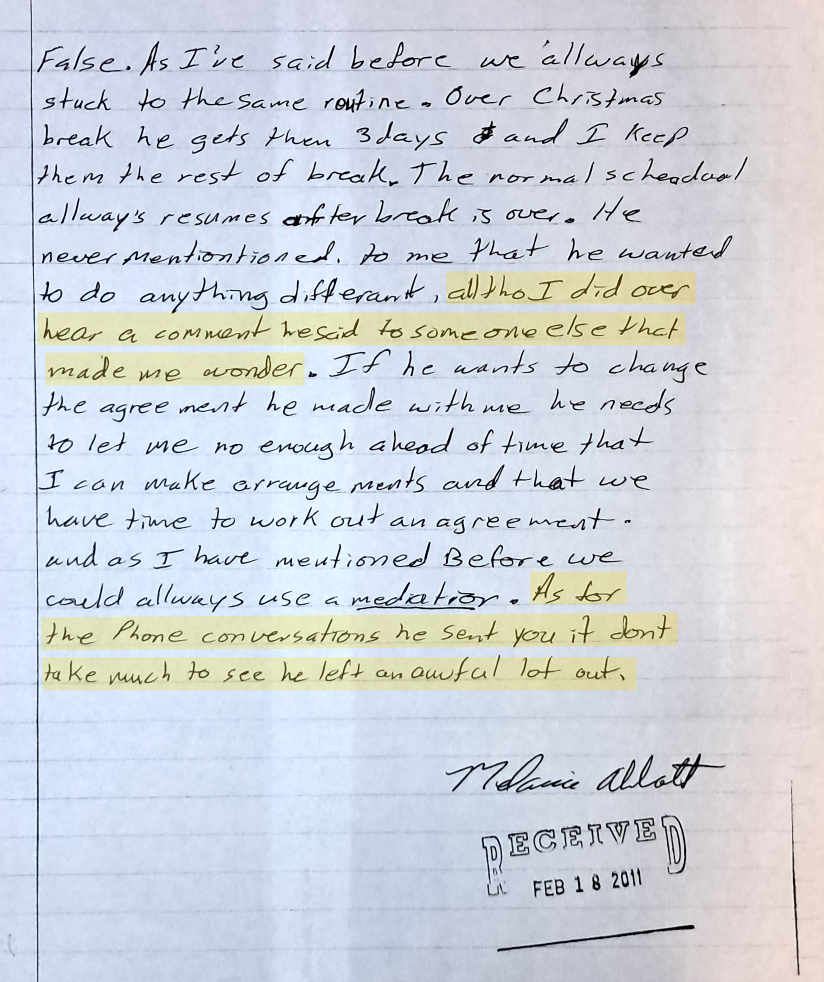 False. As I've said before we allways
stuck to the same routine. Over Christmas
break he gets then 3 days and I Keep
them the rest of break. The normal scheadual
allway's resumes after break is over. He
never mentiontioned. to me that he wanted
to do anything differant, alltho I did over
hear a comment he said to someone else that
made me wonder. If he wants to change
the agreement he made with me he needs
to let me no enough ahead of time that
I can make arrangements and that we
have time to work out an agreement.
and as I have mentioned Before we
could allways use a mediatior. As for
the Phone conversations he sent you it dont
take much to see he left an awful lot out.
Melanie Abbott
RECEIVED
FEB 18 2011